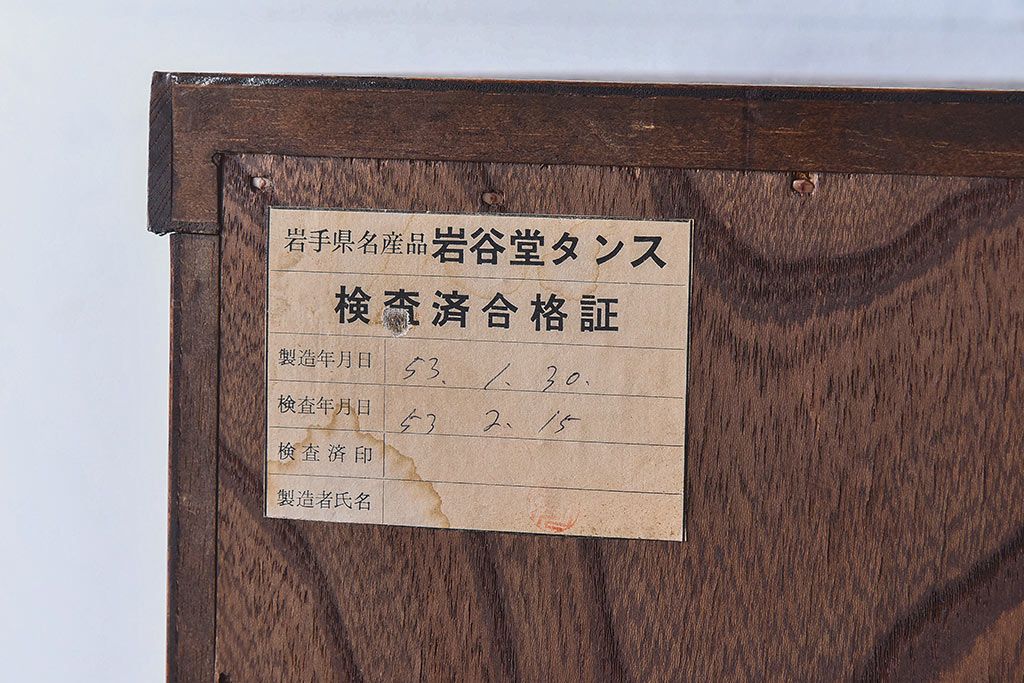 岩手県名産品 岩谷堂タンス
検査済合格証
製造年月日 53. 1. 30.
検査年月日 53 2. 15
検査済印
製造者氏名